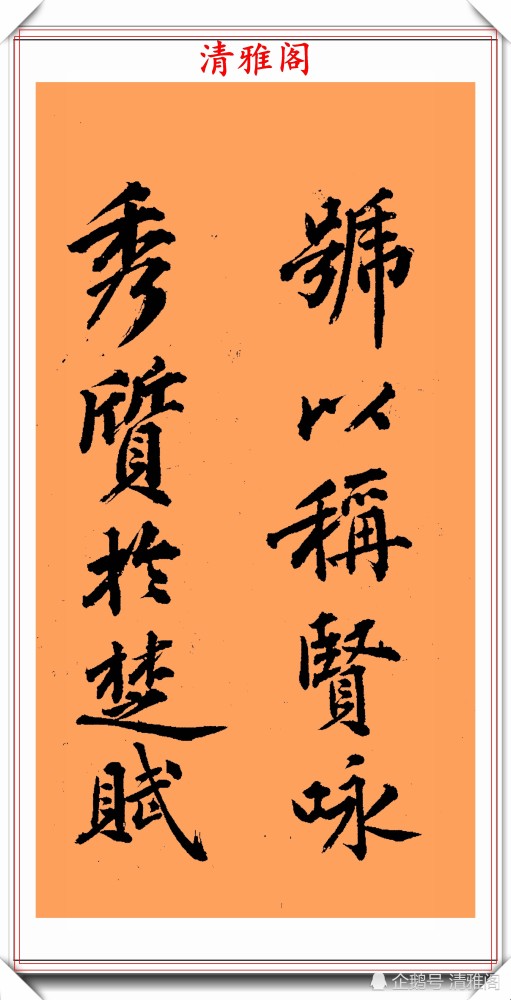 清雅阁
號以稱賢咏
秀質於楚賦
企鹅号 清雅阁